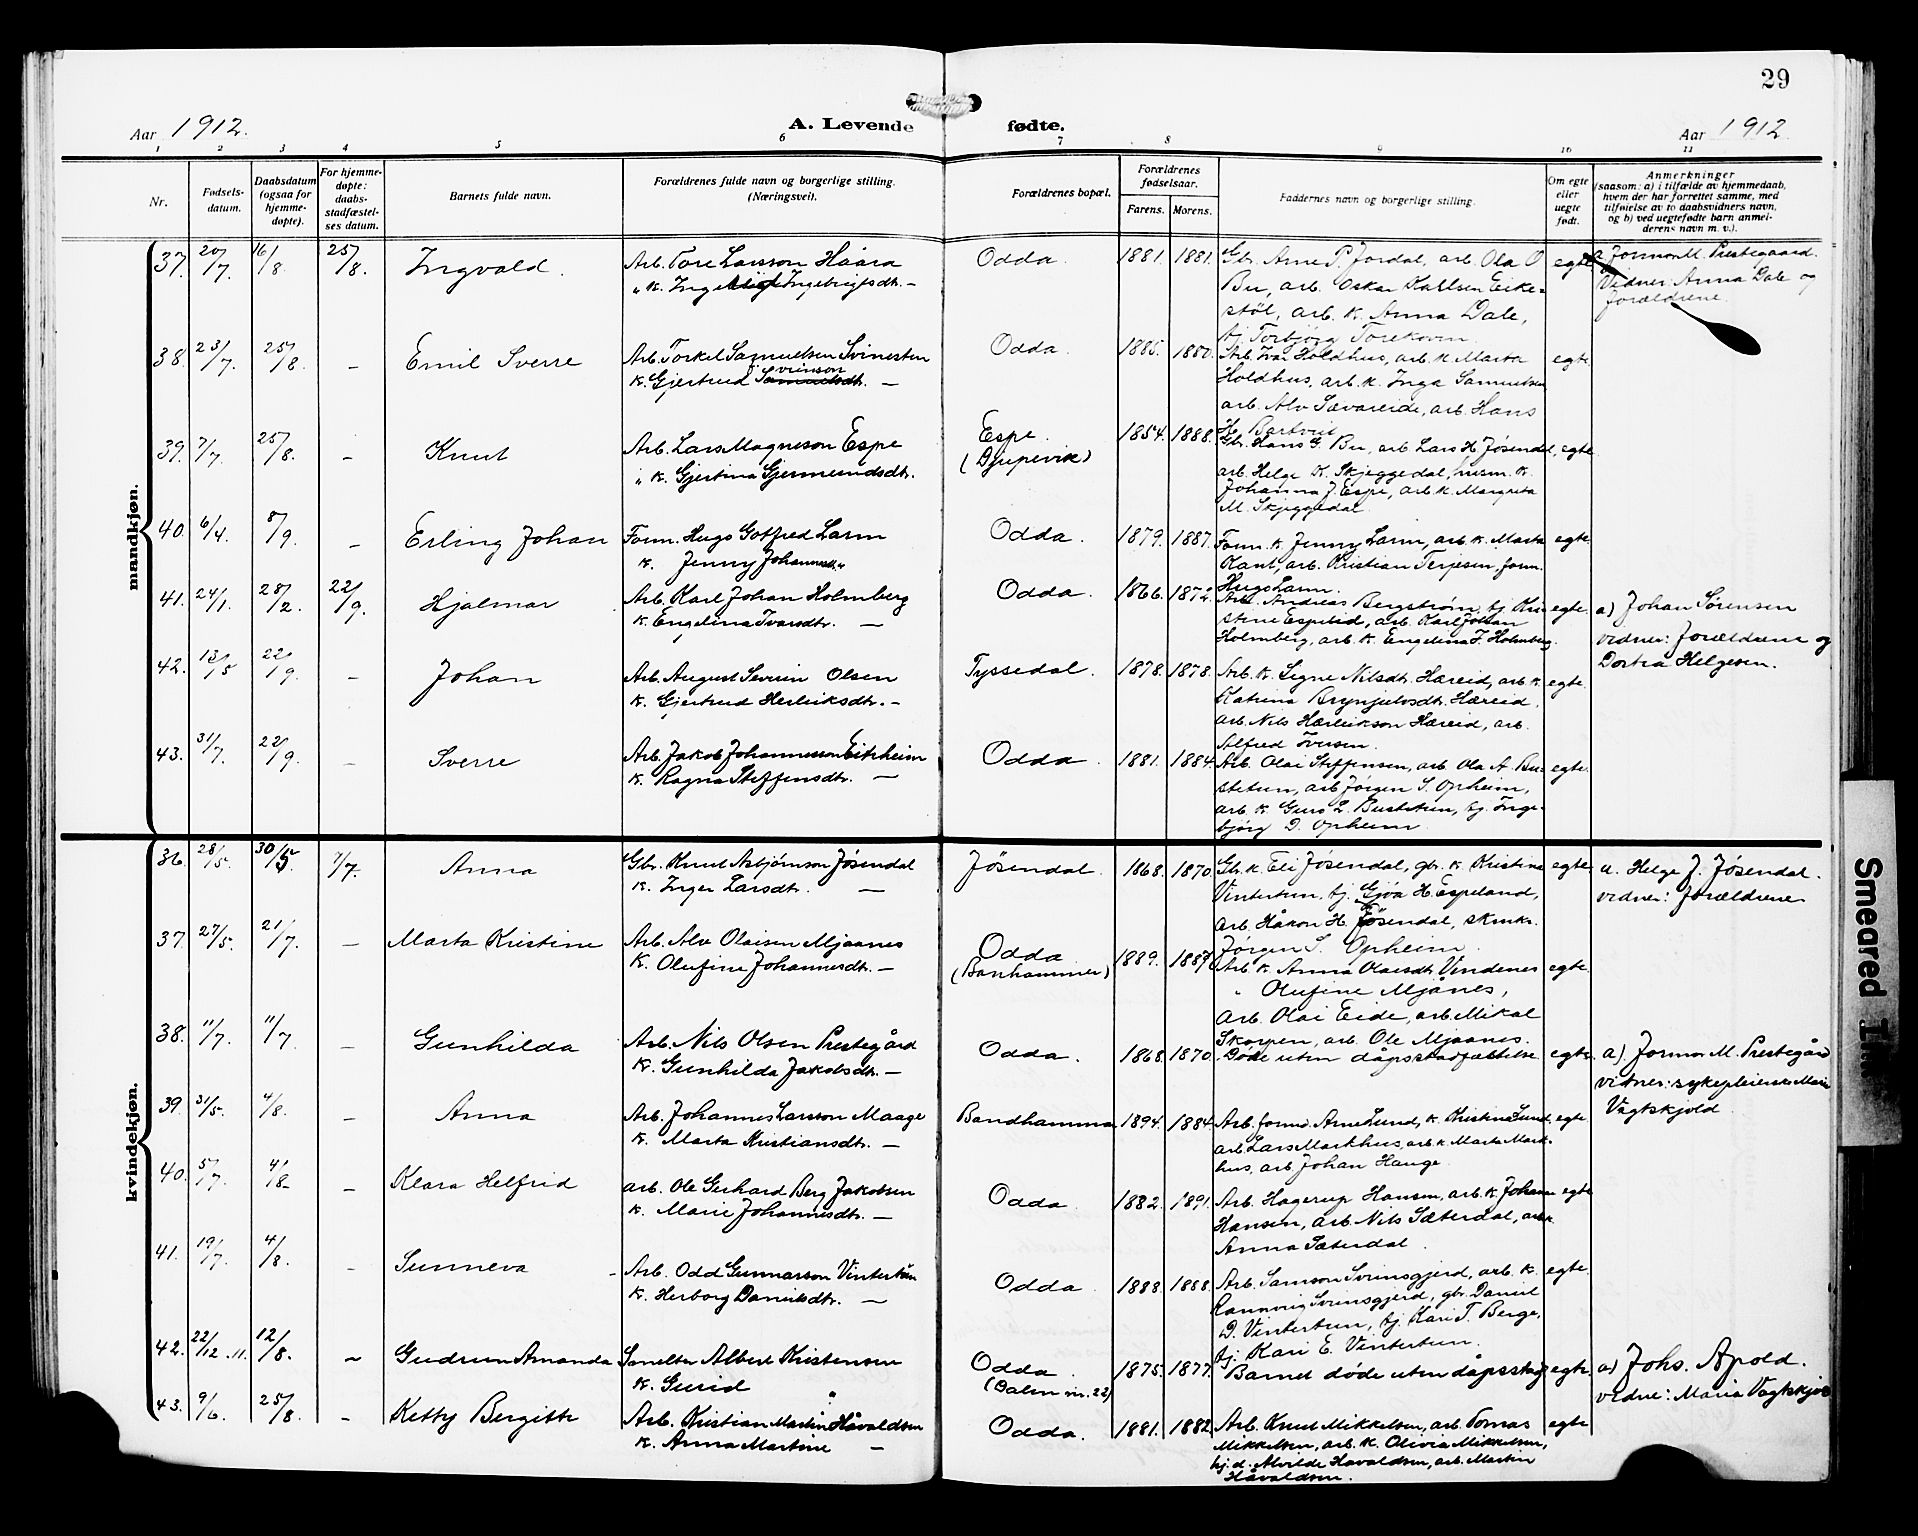 29
Aar 1912.
A. Levende fødte.
Aar 1912.
1 2 3 4 5 6 7 8 9 10 11
Nr.
Fødsels-
datum.
Daabsdatum
(ogsaa for
hjemme-
døpte).
For hjemme-
døpte:
daabs-
stadfæstel-
ses datum.
Barnets fulde navn.
Forældrenes fulde navn og borgerlige stilling.
(Næringsvei).
Forældrenes bopæl.
Forældrenes
fødselsaar.
Farens. Morens.
Faddernes navn og borgerlige stilling.
Om egte
eller
uegte
født.
Anmerkninger
(saasom: a) i tilfælde av hjemmedaab,
hvem der har forrettet samme, med
tilføielse av to daabsvidners navn,
og b) ved uegtefødte barn anmel-
derens navn m. v.).
mandkjøn.
37. 20/7 16/8 25/8. Ingvald. Arb. Tore Larsson Håära Odda. 1881. 1881. Gbr. Arne P. Jordal, arb. Ola O egte a Jormor M. Prestegaard.
" K. Ingebrigtsdt. — Bu, arb. Oskar Karlsen Eike- Vidner: Anna Dale og
støl, arb. K. Anna Dale, forældrene.
tj. Torbjørg
38. 23/7. 25/8. — Emil Sverre Arb. Torkel Samuelsen Svinesten Odda. 1885. 1880. Arb. Ivar Holdhus, arb. K. Marta egte.
K. Gjertrud Svenson Samuelsdt. — Holdhus, arb. K. Inga Samuelsen
arb. Alv Sævareide, arb. Hans
H. Bartveit
39. 7/7. 25/8. — Knut Arb. Lars Magneson Espe Espe. 1854. 1888. Gbr. Hans G. Bu, arb. Lars H. Jøsendal, egte.
" K. Gjertina Gjermundsdt. (Djupevik) arb. Helge K. Skjeggedal, husm. K.
Johanna J. Espe, arb. K. Margreta
M. Skjeggedal
40. 6/4. 8/9. — Erling Johan Form. Hugo Gotfred Larm Odda. 1879. 1887. Form. K. Jenny Larm, arb. K. Marta egte.
K. Jenny Johannesd. " Kant, arb. Kristian Terjesen, form.
Hugo Larm.
41. 24/1. 28/2. 22/9. Hjalmar Arb. Karl Johan Holmberg Odda. 1866. 1872. Arb. Andreas Bergstrøm, tj. Kri- egte. a) Johan Sørensen
K. Engelina Ivarsdtr. — stine Espelid, arb. Karl Johan vidner: Forældrene og
Holmberg, arb. K. Engelina F. Holmberg. Dortea Helgesen.
42. 13/5 22/9. — Johan Arb. August Severin Olsen Tyssedal. 1878. 1878. Arb. K. Signe Nilsdt. Hæreid, arb. K. egte.
K. Gjertrud Herleiksdtr. — Katrina Brynjulvsdt. Hæreid,
arb. Nils Hærleikson Hæreid, arb.
Alfred Iversen.
43. 31/7. 22/9. — Sverre Arb. Jakob Johannesson Eitrheim Odda. 1881. 1884. Arb. Olai Steffensen, arb. Ola A. Bu- egte.
K. Ragna Steffensdtr. — stetun, arb. Jørgen S. Opheim,
arb. K. Guro L. Bustetun, tj. Inge-
bjørg D. Opheim.
kvindekjøn.
36. 28/5. 30/5. 7/7. Anna Gbr. Knut Asbjørnson Jøsendal Jøsendal. 1868. 1870. Gbr. K. Eli Jøsendal, gbr. K. Kristina egte. a. Helge J. Jøsendal.
K. Inger Larsdtr. — Vintertun, tj. Gjøa H. Espeland, vidner: forældrene
arb. Håkon H. Jøsendal, skmkr.
Jørgen S. Opheim.
37. 27/5. 21/7. — Marta Kristine Arb. Alv Olaisen Mjaanes Odda 1889. 1887. Arb. K. Anna Olaisdt. Vindenes egte.
K. Olufine Johannesdt. — (Banhammer) " Olufine Mjånes,
arb. Olai Eide, arb. Mikal
Skorpen, arb. Ole Mjaanes.
38. 11/7. 11/7. — Gunhilda Arb. Nils Olsen Prestegård Odda. 1868. 1870. Døde uten dåpsstadfæstelse egte. a). Jormor M. Prestegård
K. Gunhilda Jakobsdt. — vidner: sykepleierske Marie
Vagtskjold
39. 31/5. 4/8. — Anna Arb. Johannes Larsson Maage Bandhammar 1894. 1884. Arb. formd. Arne Lund, K. Kristina Lund, egte.
K. Marta Kristiansdt. — arb. Lars Markhus, arb. K. Marta Mark-
hus, arb. Johan Hauge.
40. 5/7. 4/8. — Klara Helfrid arb. Ole Gerhard Berg Jakobsen Odda. 1882. 1891. Arb. Hagerup Hansen, arb. K. Johan egte.
K. Marie Johannesdtr. — Hansen, arb. Nils Sæterdal, arb. K.
Anna Sæterdal.
41. 19/7. 4/8. — Sunneva Arb. Odd Gunnarson Vintertun Odda. 1888. 1888. Arb. Samson Svinsgjerd, arb. K. egte.
K. Herborg Danielsdtr. — Rannveig Svinsgjerd, gbr. Daniel
D. Vintertun, tj. Kari T. Berge,
tj. Kari E. Vintertun.
42. 22/12.11. 12/8. — Gudrun Amanda Smelter Albert Kristensen Odda. 1875. 1877. Barnet døde uten dåpsstadf egte a) Johs. Apold.
K. Gurid " (Dalen nr. 22) vidne: Maria Vagtskjold
43. 9/6. 25/8. — Ketty Bergitte Arb. Kristian Martin Håvaldsen Odda. 1881. 1882 Arb. Knut Mikkelsen, arb. Tomas egte
K. Anna Martine — Mikkelsen, arb. K. Olivia Mikkelsen,
tj. d. Alvilde Håvaldsen, arb. Martin
Håvaldsen.
Smeared